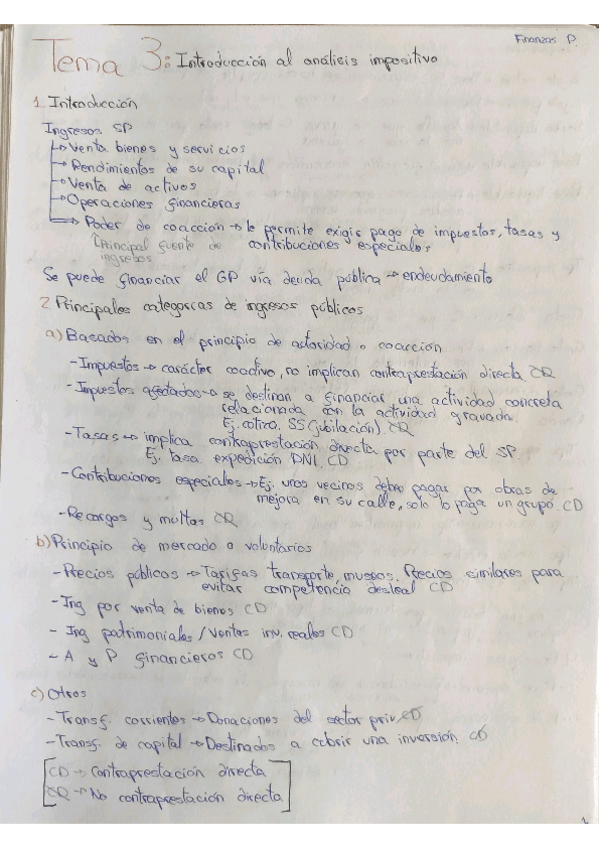 Finanzas P.
Tema 3: Introducción al análisis impositivo
1. Introducción
Ingresos SP
→ Venta bienes y servicios
→ Rendimientos de su capital
→ Venta de activos
→ Operaciones financieras
→ Poder de coacción → le permite exigir pago de impuestos, tasas y
Principal fuente de contribuciones especiales
ingresos
Se puede financiar el GP vía deuda pública → endeudamiento
2. Principales categorías de ingresos públicos
a) Basados en el principio de autoridad o coacción
- Impuestos → carácter coactivo, no implican contraprestación directa CR
- Impuestos afectados → se destinan a financiar una actividad concreta
relacionada con la actividad gravada.
Ej. cotiza. SS (jubilación) CR
- Tasas → implica contraprestación directa por parte del SP.
Ej. tasa expedición DNI. CD
- Contribuciones especiales → Ej. unos vecinos deben pagar por obras de
mejora en su calle, solo lo paga un grupo. CD
- Recargos y multas CR
b) Principio de mercado o voluntarios
- Precios públicos → Tarifas transporte, museos. Precios similares para
evitar competencia desleal CD
- Ing por venta de bienes CD
- Ing patrimoniales / Ventas inv. reales CD
- A y P financieros CD
c) Otros
- Transf. corrientes → Donaciones del sector priv.
- Transf. de capital → Destinados a cubrir una inversión.
CD → Contraprestación directa
CR → No contraprestación directa
1